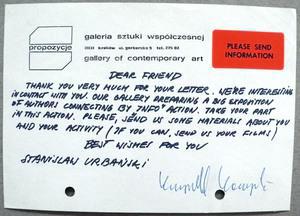 propozycje
galeria sztuki współczesnej
gallery of contemporary art
PLEASE SEND
INFORMATION
DEAR FRIEND
THANK YOU VERY MUCH FOR YOUR LETTER. WE'RE INTERESTING
IN CONTACT WITH YOU. OUR GALLERY PREPARING A BIG EXPOSITION
OF AUTHORS CONNECTING BY "INFO" ACTION. TAKE YOUR PART
IN THIS ACTION. PLEASE, SEND US SOME MATERIALS ABOUT YOU
AND YOUR ACTIVITY (IF YOU CAN, SEND US YOUR FILMS)
BEST WISHES FOR YOU
STANISLAW URBAŃSKI